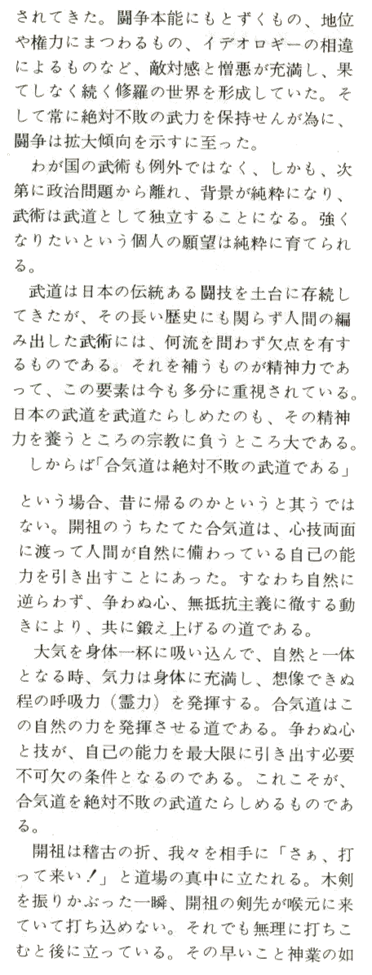 されてきた。闘争本能にもとずくもの、地位
や権力にまつわるもの、イデオロギーの相違
によるものなど、敵対感と憎悪が充満し、果
てしなく続く修羅の世界を形成していた。そ
して常に絶対不敗の武力を保持せんが為に、
闘争は拡大傾向を示すに至った。
わが国の武術も例外ではなく、しかも、次
第に政治問題から離れ、背景が純粋になり、
武術は武道として独立することになる。強く
なりたいという個人の願望は純粋に育てられ
る。
武道は日本の伝統ある闘技を土台に存続し
てきたが、その長い歴史にも関らず人間の編
み出した武術には、何流を問わず欠点を有す
るものである。それを補うものが精神力であ
って、この要素は今も多分に重視されている。
日本の武道を武道たらしめたのも、その精神
力を養うところの宗教に負うところ大である。
しからば「合気道は絶対不敗の武道である」
という場合、昔に帰るのかというと其うでは
ない。開祖のうちたてた合気道は、心技両面
に渡って人間が自然に備わっている自己の能
力を引き出すことにあった。すなわち自然に
逆らわず、争わぬ心、無抵抗主義に徹する動
きにより、共に鍛え上げるの道である。
大気を身体一杯に吸い込んで、自然と一体
となる時、気力は身体に充満し、想像できぬ
程の呼吸力（霊力）を発揮する。合気道はこ
の自然の力を発揮させる道である。争わぬ心
と技が、自己の能力を最大限に引き出す必要
不可欠の条件となるのである。これこそが、
合気道を絶対不敗の武道たらしめるものであ
る。
開祖は稽古の折、我々を相手に「さぁ、打
って来い！」と道場の真中に立たれる。木剣
を振りかぶった一瞬、開祖の剣先が喉元に来
ていて打ち込めない。それでも無理に打ちこ
むと後に立っている。その早いこと神業の如